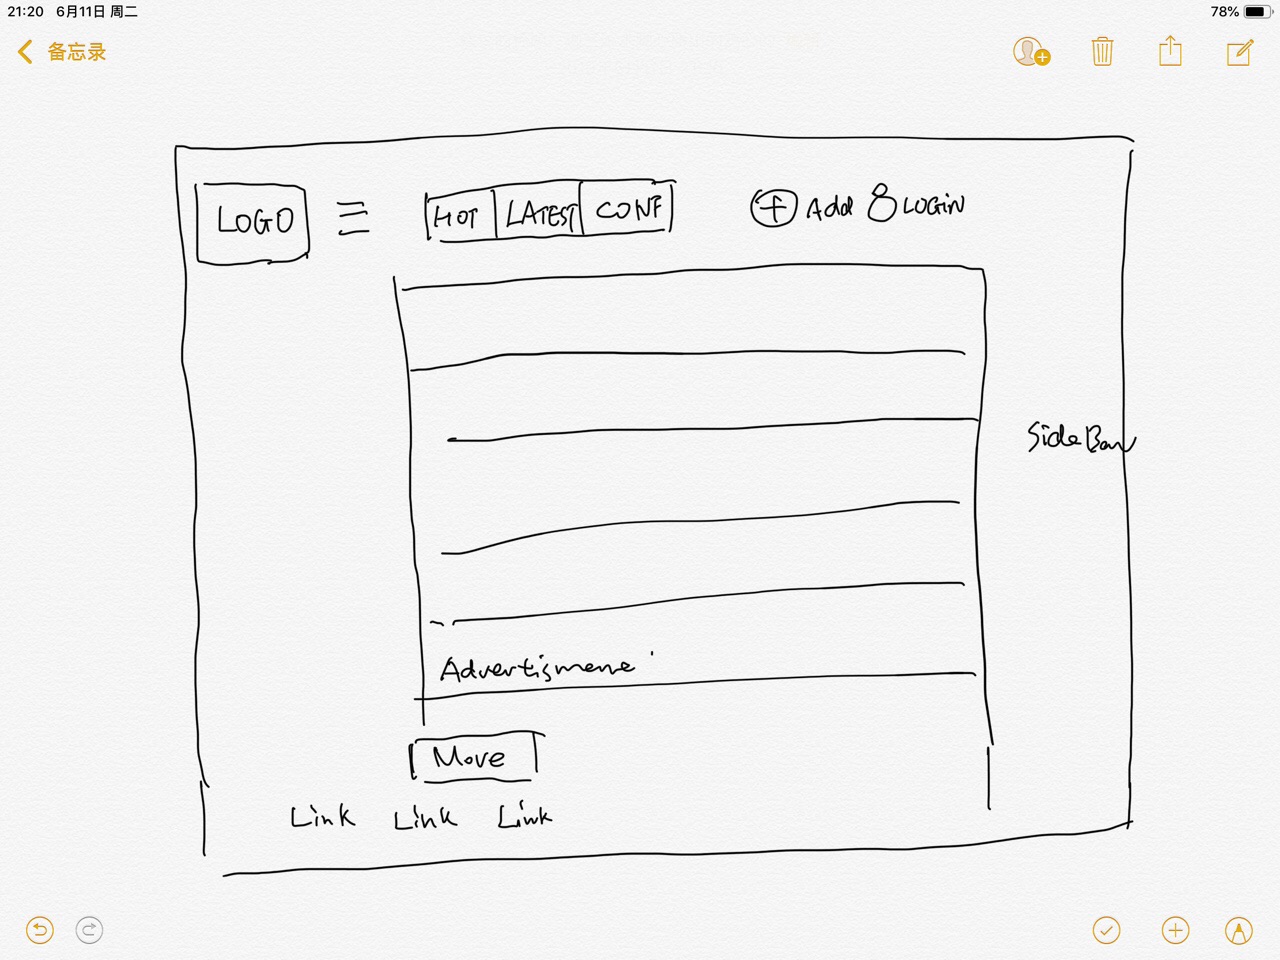 21:20 6月11日 周二
78%
备忘录
LOGO HOT LATEST CONF Add LOGIN
SideBar
Advertismene
More
Link Link Link